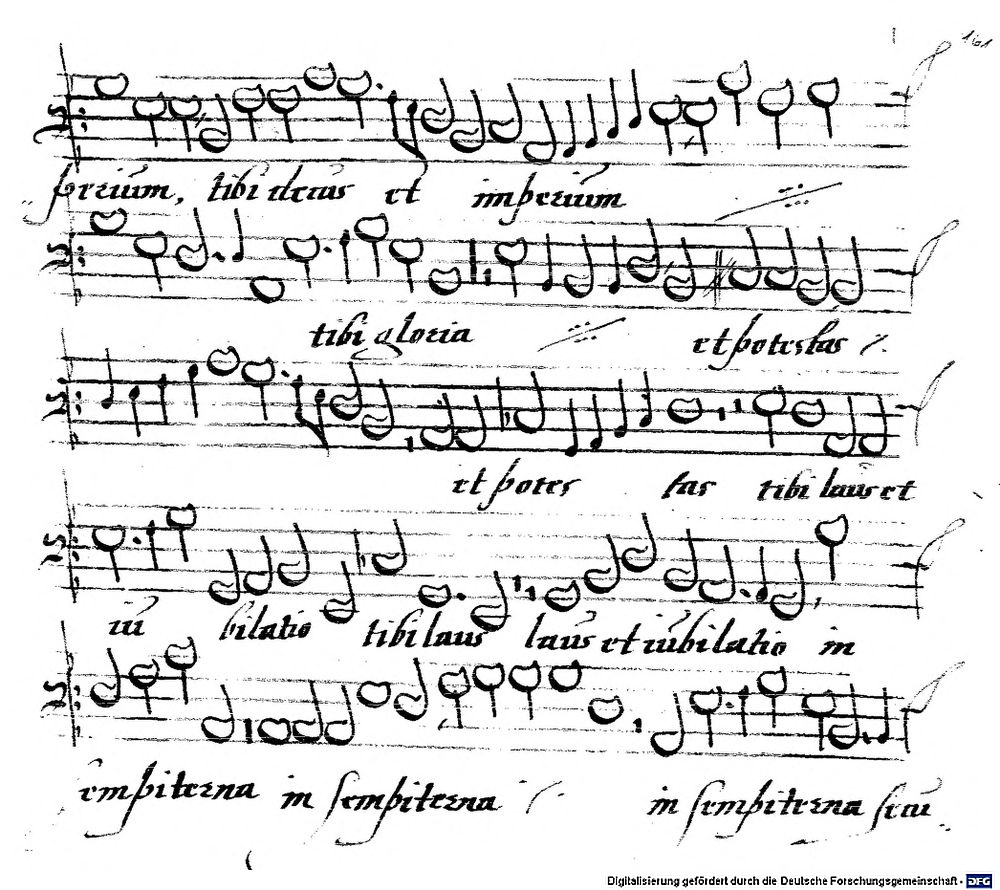 161
perium, tibi decus et imperium
tibi gloria et potestas
et potes tas tibi laus et
iu bilatio tibi laus laus et iubilatio in
sempiterna in sempiterna in sempiterna secu
Digitalisierung gefördert durch die Deutsche Forschungsgemeinschaft - DFG